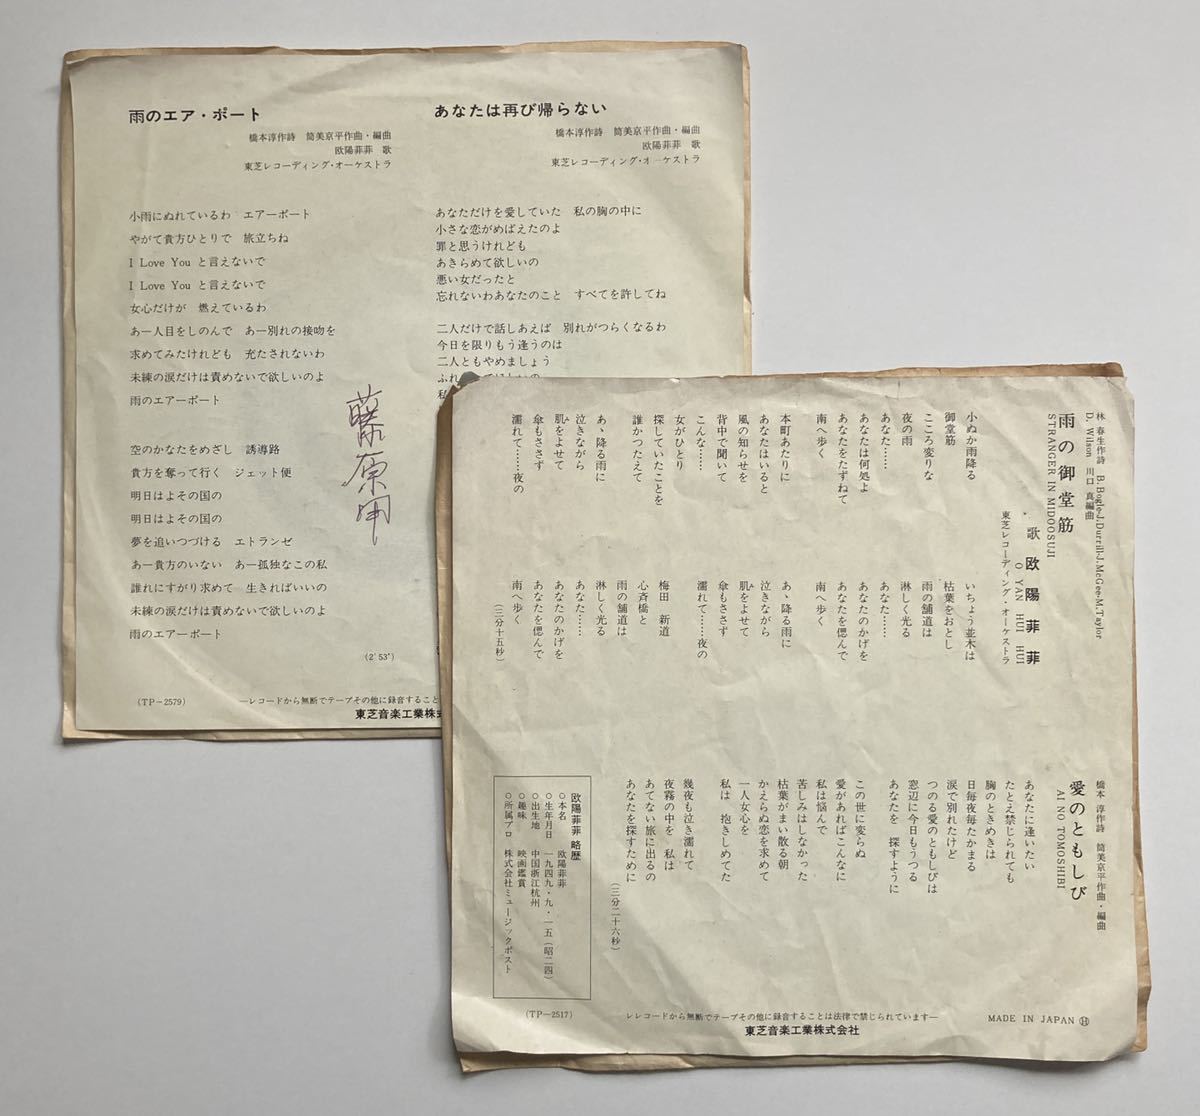 雨のエア・ポート
橋本淳作詩 筒美京平作曲・編曲
欧陽菲菲 歌
東芝レコーディング・オーケストラ
小雨にぬれているわ エアーポート
やがて貴方ひとりで 旅立ちね
I Love You と言えないで
I Love You と言えないで
女心だけが 燃えているわ
あー人目をしのんで あー別れの接吻を
求めてみたけれども 充たされないわ
未練の涙だけは責めないで欲しいのよ
雨のエアーポート
空のかなたをめざし 誘導路
貴方を奪って行く ジェット便
明日はよその国の
明日はよその国の
夢を追いつづける エトランゼ
あー貴方のいない あー孤独なこの私
誰れにすがり求めて 生きればいいの
未練の涙だけは責めないで欲しいのよ
雨のエアーポート
(2′53″)
(TP-2579)
―レコードから無断でテープその他に録音すること
東芝音楽工業株式
あなたは再び帰らない
橋本淳作詩 筒美京平作曲・編曲
欧陽菲菲 歌
東芝レコーディング・オーケストラ
あなただけを愛していた 私の胸の中に
小さな恋がめばえたのよ
罪と思うけれども
あきらめて欲しいの
悪い女だったと
忘れないわあなたのこと すべてを許してね
二人だけで話しあえば 別れがつらくなるわ
今日を限りもう逢うのは
二人ともやめましょう
ふれ
私
藤原
林 春生作詩 B. Bogle-J.Durrill-J.McGee-M.Taylor
D. Wilson 川口 真編曲
雨の御堂筋
STRANGER IN MIDOOSUJI
歌 欧陽菲菲
O YAN HUI HUI
東芝レコーディング・オーケストラ
小ぬか雨降る
御堂筋
こころ変りな
夜の雨
あなた……
あなたは何処よ
あなたをたずねて
南へ歩く
本町あたりに
あなたはいると
風の知らせを
背中で聞いて
こんな……
女がひとり
探していたことを
誰かつたえて
あゝ降る雨に
泣きながら
肌をよせて
傘もささず
濡れて……夜の
いちょう並木は
枯葉をおとし
雨の舗道は
淋しく光る
あなた……
あなたのかげを
あなたを偲んで
南へ歩く
あゝ降る雨に
泣きながら
肌をよせて
傘もささず
濡れて……夜の
梅田 新道
心斉橋と
雨の舗道は
淋しく光る
あなた……
あなたのかげを
あなたを偲んで
南へ歩く
(三分十五秒)
橋本 淳作詩 筒美京平作曲・編曲
愛のともしび
AI NO TOMOSHIBI
あなたに逢いたい
たとえ禁じられても
胸のときめきは
日毎夜毎たかまる
涙で別れたけど
つのる愛のともしびは
窓辺に今日もうつる
あなたを 探すように
この世に変らぬ
愛があればこんなに
私は悩んで
苦しみはしなかった
枯葉がまい散る朝
かえらぬ恋を求めて
一人女心を
私は 抱きしめてた
幾夜も泣き濡れて
夜霧の中を 私は
あてない旅に出るの
あなたを探すために
(三分二十六秒)
欧陽菲菲 略歴
○本名 欧陽菲菲
○生年月日 一九四九・九・一五(昭二四)
○出生地 中国浙江杭州
○趣味 映画鑑賞
○所属プロ 株式会社ミュージックポスト
(TP-2517)
レレコードから無断でテープその他に録音することは法律で禁じられています―
東芝音楽工業株式会社
MADE IN JAPAN Ⓗ